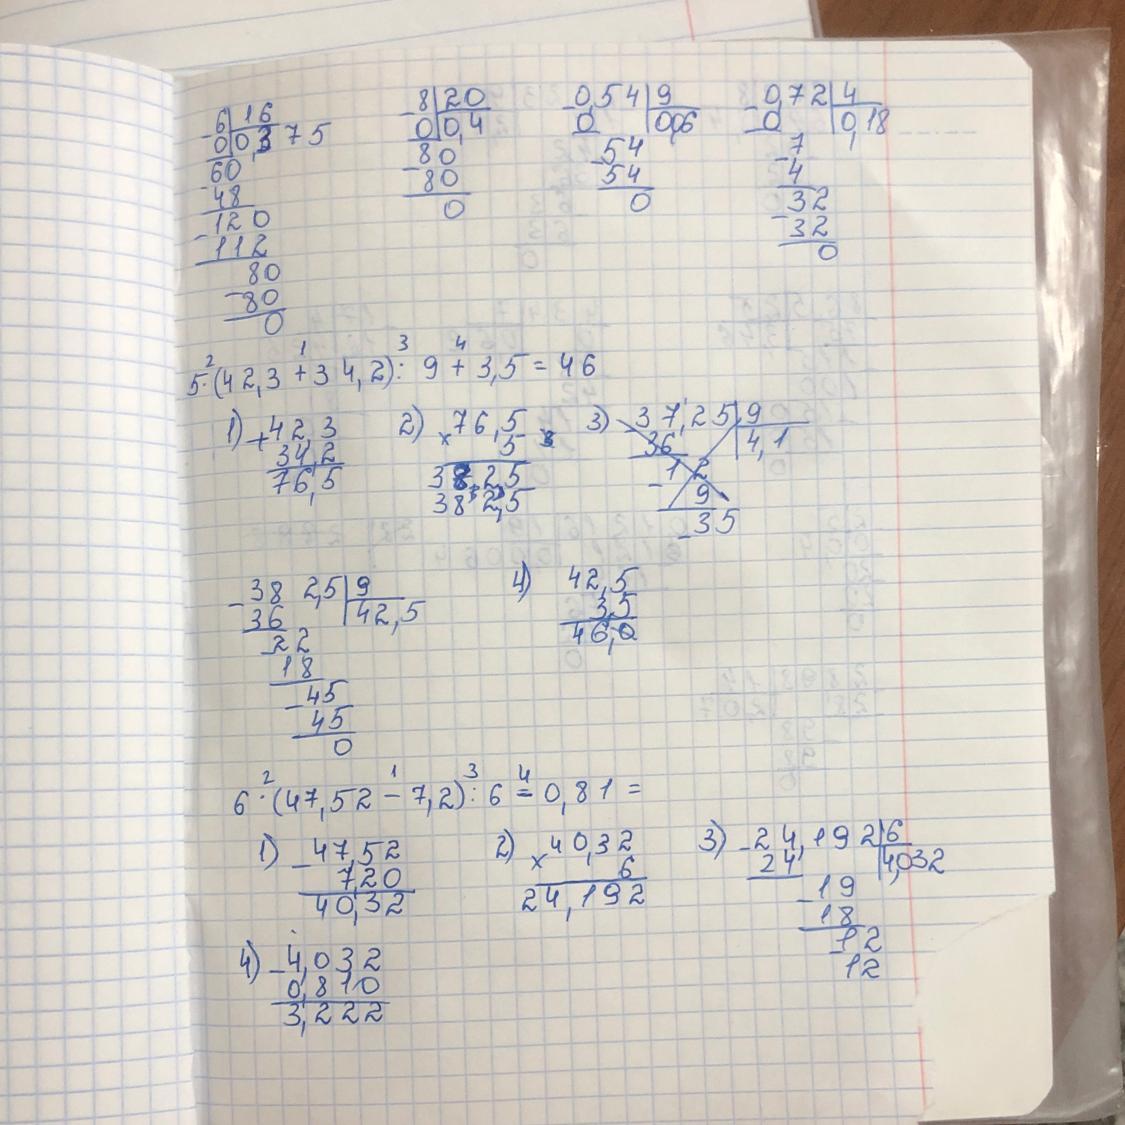 6 | 16
0 | 0,375
60
48
120
112
80
80
0
8 | 20
0 | 0,4
80
80
0
0,54 | 9
0 | 0,06
54
54
0
0,72 | 4
0 | 0,18
7
4
32
32
0
1 2 3 4
5·(42,3+34,2):9+3,5=46
1) +42,3
34,2
76,5
2) ×76,5
5
38 2,5
38 2,5
3) 37,25 | 9
36 | 4,1
12
9
35
-38 2,5 | 9
36 | 42,5
22
18
45
45
0
4) 42,5
3,5
46,0
2 1 3 4
6·(47,52-7,2):6-0,81=
1) -47,52
7,20
40,32
2) ×40,32
6
24,192
3) -24,192 | 6
24 | 4,032
-19
18
12
12
4) -4,032
0,810
3,222